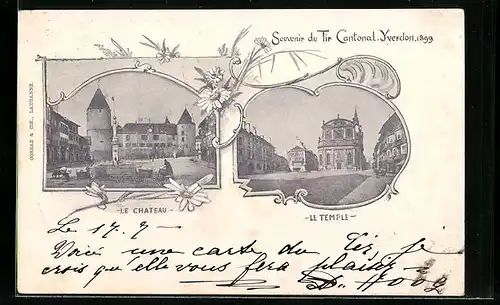 Souvenir du Tir Cantonal. Yverdon, 1899
CORBAZ & CIE., LAUSANNE.
-LE CHATEAU-
-LE TEMPLE-
Le 17. 7-
Voici une carte du Tir, je
crois que elle vous fera plaisir